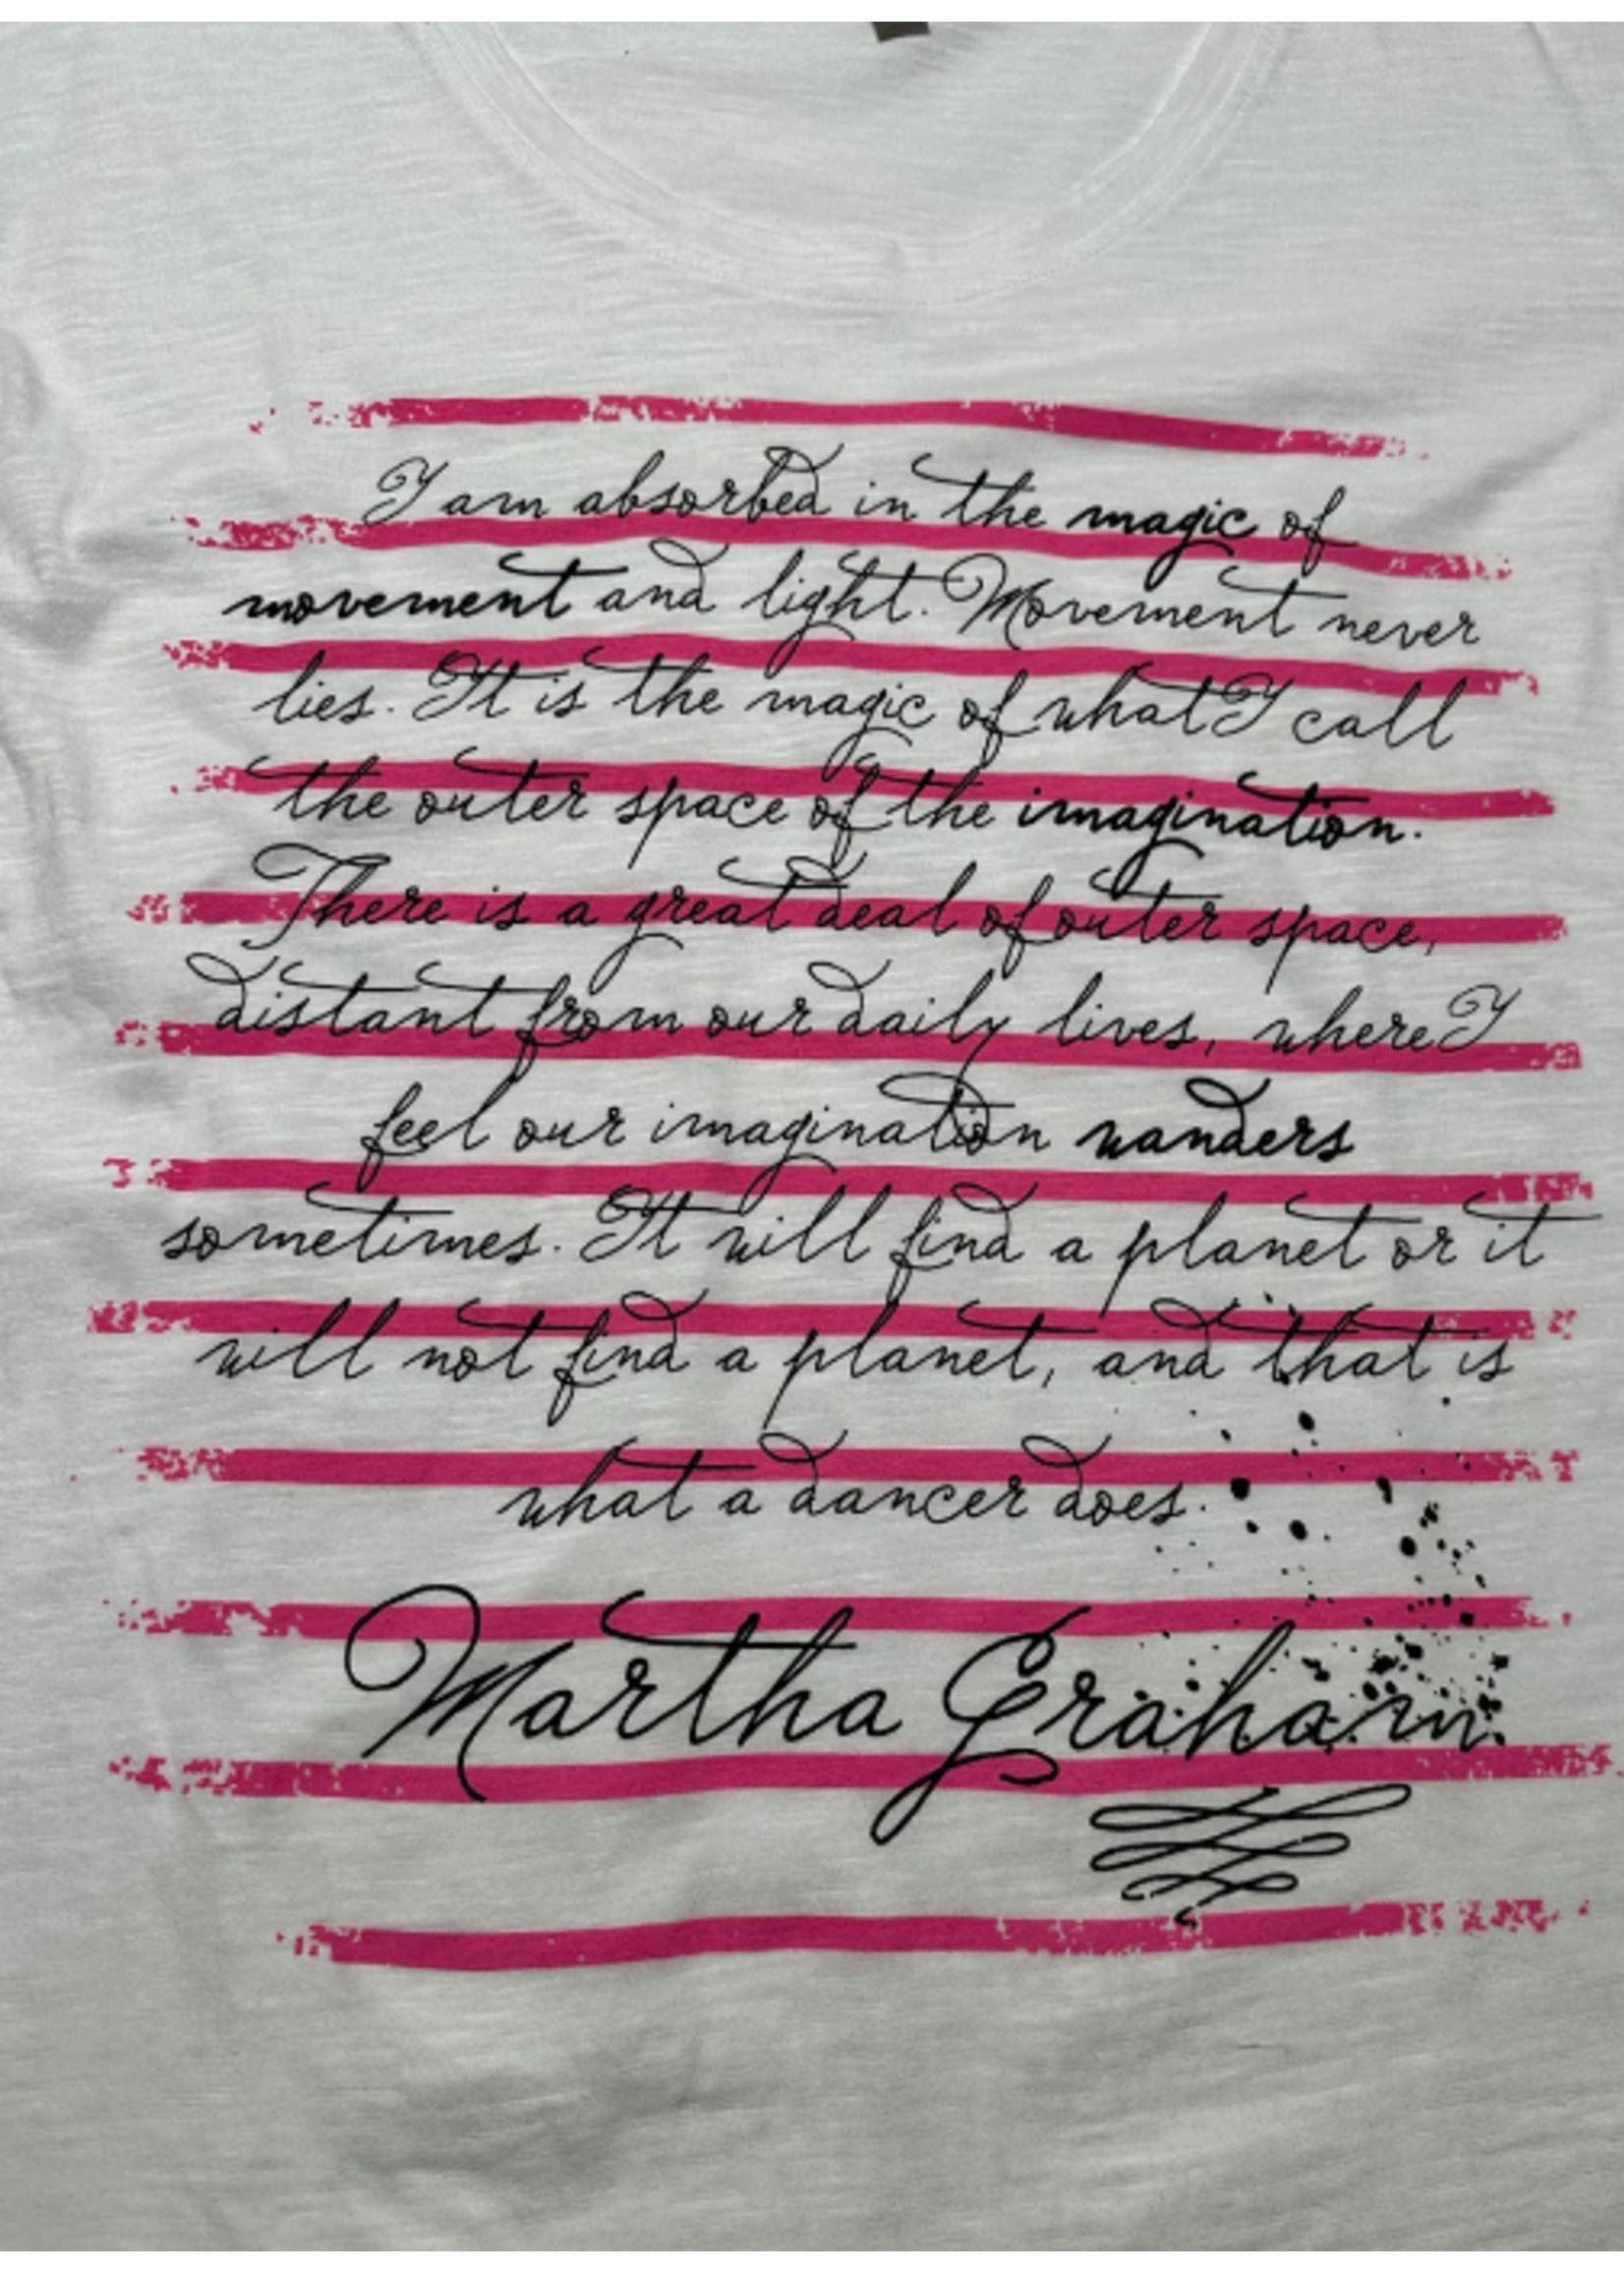 I am absorbed in the magic of
movement and light. Movement never
lies. It is the magic of what I call
the outer space of the imagination.
There is a great deal of outer space,
distant from our daily lives, where I
feel our imagination wanders
sometimes. It will find a planet or it
will not find a planet, and that is
what a dancer does.
Martha Graham.